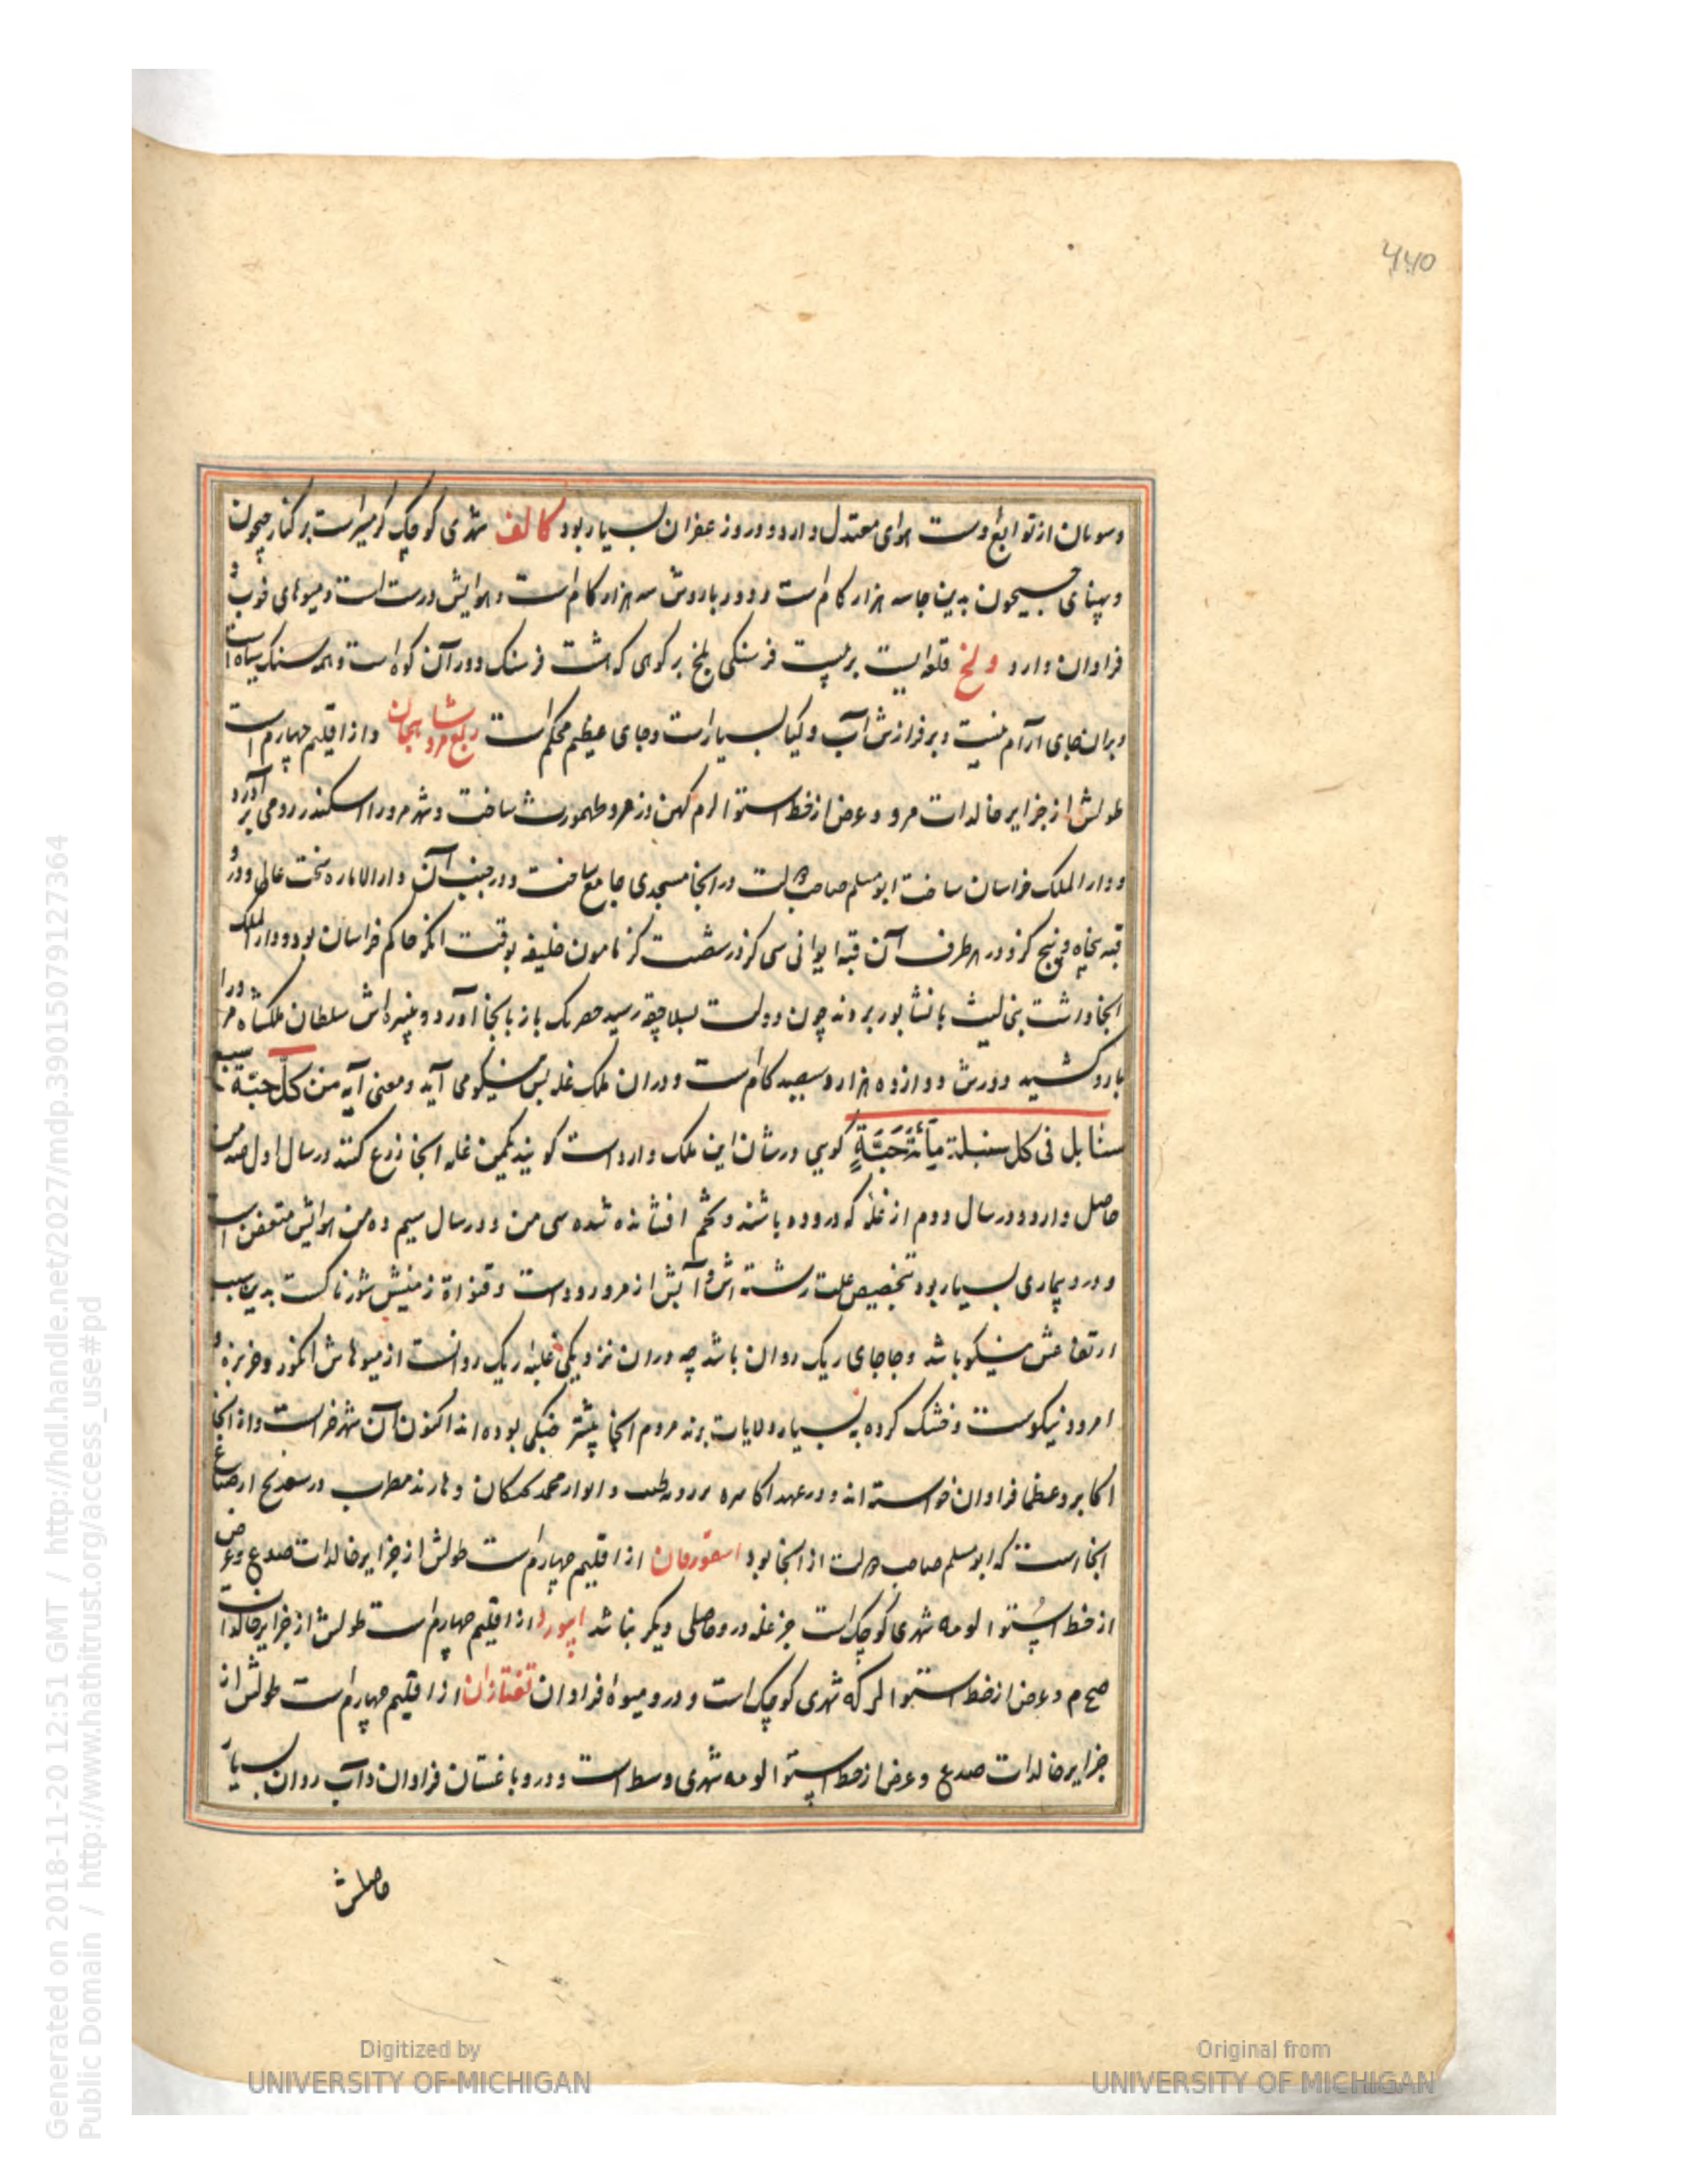 ۴۴۵
وسومان از توابع اوست هوای معتدل دارد و درو زعفران بسیار بود کالف شهری کوچک گرمسیر است بر کنار جیحون
و پهنای جیحون بدین جا سه هزار کام است و دور باروش سه هزار کام است و هوایش درست است و میوهای خوب و
فراوان دارد ولخ قلعه ایست بر بیست فرسنکی بلخ بر کوهی که هشت فرسنک دور آن کوه است و همه سنک سیاه است
و بران جای آرام نیست و بر فرازش آب و کیاه بسیار است و جای عظیم محکم است ربع مرو شاهجان و از اقلیم چهارم است
طولش از جزایر خالدات مرو و عرض از خط استوا لرم کهن دز مرو طهمورث ساخت و شهر مرو را اسکندر رومی بر آورد
و دار الملک خراسان ساخت ابو مسلم صاحب دولت در انجا مسجدی جامع ساخت و در جنب آن دار الاماره سخت عالی و درو
قبه پنجاه و پنج کز و در هر طرف آن قبه ایوانی سی کز در شصت کز مامون خلیفه بوقت انکه حاکم خراسان بود دار الملک
انجا داشت بنی لیث با نشابور بردند چون دولت بسلاجقه رسید جغربک باز بانجا آورد و نبیره اش سلطان ملکشاه مرو را
بارو کشید دورش دوازده هزار و سیصد کام است و در ان ملک غله بس نیکو می آید و معنی آیه من کل حبة سبع
سنابل فی کل سنبلة مائة حبة کویی در شان این ملک وارد است کویند یک من غله انجا زرع کنند در سال اول صد من
حاصل دارد و در سال دوم از غله که دروده باشند و تخم افشانده شده سی من و در سال سیم ده من هوایش متعفن است
و درو بیماری بسیار بود بتخصیص علت رشته و آبش از مرورود است و قنواة زمینش شورناکست بدین سبب
ارتفاعش نیکو باشد و جا جای ریک روان باشد چه در ان نزدیکی غلبه ریک روانست از میوهاش انکور و خربزه و
امرود نیکوست و خشک کرده به بسیار ولایات برند مردم انجا پیشتر جنکی بوده اند اکنون آن شهر خراب است و از انجا
اکابر و عظما فراوان خواسته اند و در عهد اکاسره برزویه طبیب و باربد مطرب
انجاست که ابو مسلم صاحب دولت از انجا بود اسفورقان از اقلیم چهارم است طولش از جزایر خالدات صدع و عرض
از خط استوا لومه شهری کوچک است جز غله درو حاصلی دیکر نباشد ابیورد از اقلیم چهارم است طولش از جزایر خالدات
صح م و عرض از خط استوا لر که شهری کوچک است و درو میوه فراوان تفتازان از اقلیم چهارم است طولش از
جزایر خالدات صدع و عرض از خط استوا لومه شهری وسط است و درو باغستان فراوان و آب روان بسیار
حاصلش
Generated on 2018-11-20 12:51 GMT / http://hdl.handle.net/2027/mdp.39015079127364
Public Domain / http://www.hathitrust.org/access_use#pd
Digitized by
UNIVERSITY OF MICHIGAN
Original from
UNIVERSITY OF MICHIGAN